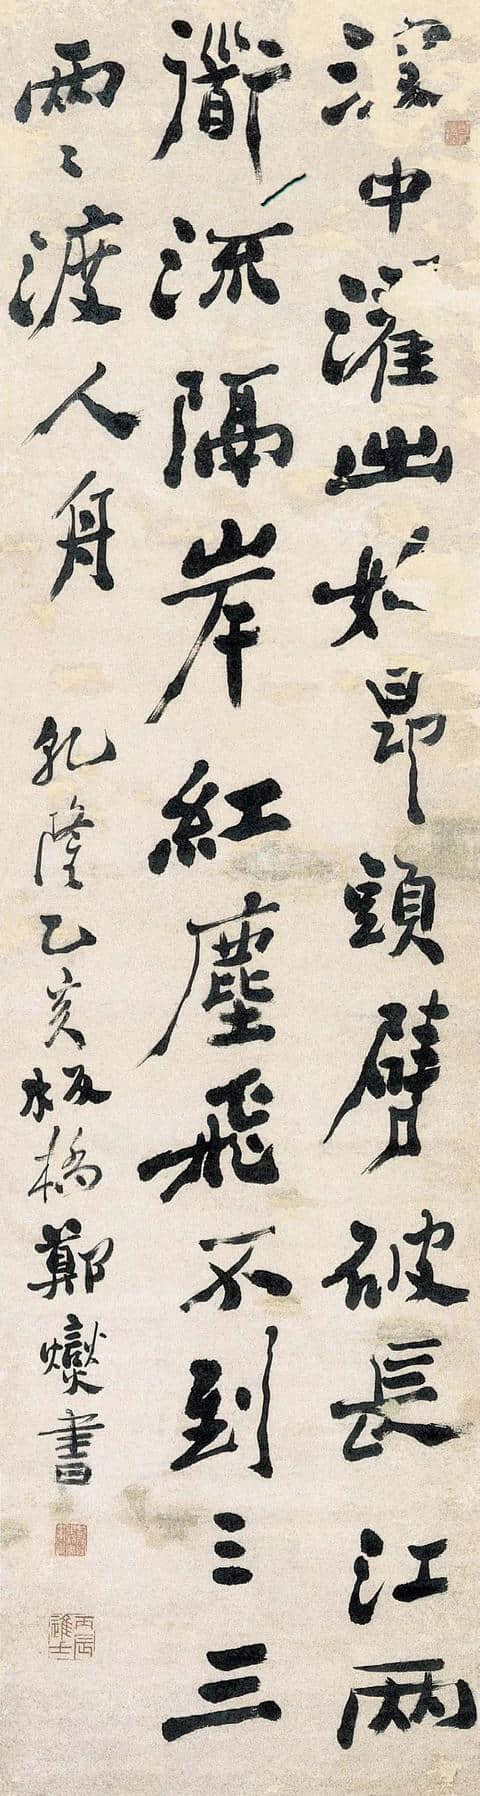 深中濯出如昂頭劈破長江兩
衜流隔岸紅塵飛不到三三
兩〻渡人舟
乾隆乙亥板橋鄭燮書
丙辰進士